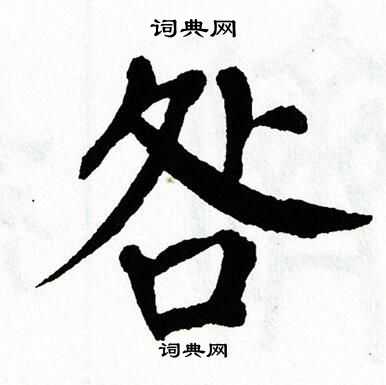 词典网
咎
词典网